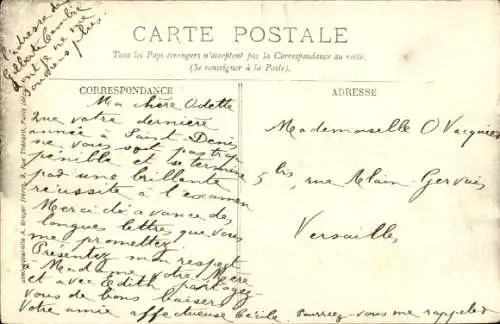 CARTE POSTALE
Tous les Pays étrangers n'acceptent pas la Correspondance au recto.
(Se renseigner à la Poste).
CORRESPONDANCE
Ma chère Odette
Que votre dernière
année à Saint-Denis
ne vous soit pas trop
pénible et se termine
par une brillante
réussite à l'examen
Merci d'avance des
longues lettres que vous
me promettez.
Présentez mon respect
à Madame votre Mère
et avec Edith partagez
vous de bons baisers
Votre amie affectueuse Cécile. Pourriez-vous me rappeler
l'adresse de
Gilberte
dont je ne me
souviens plus.
ADRESSE
Mademoiselle O Vacquier
5 bis, rue Alain-Gervais
Versailles